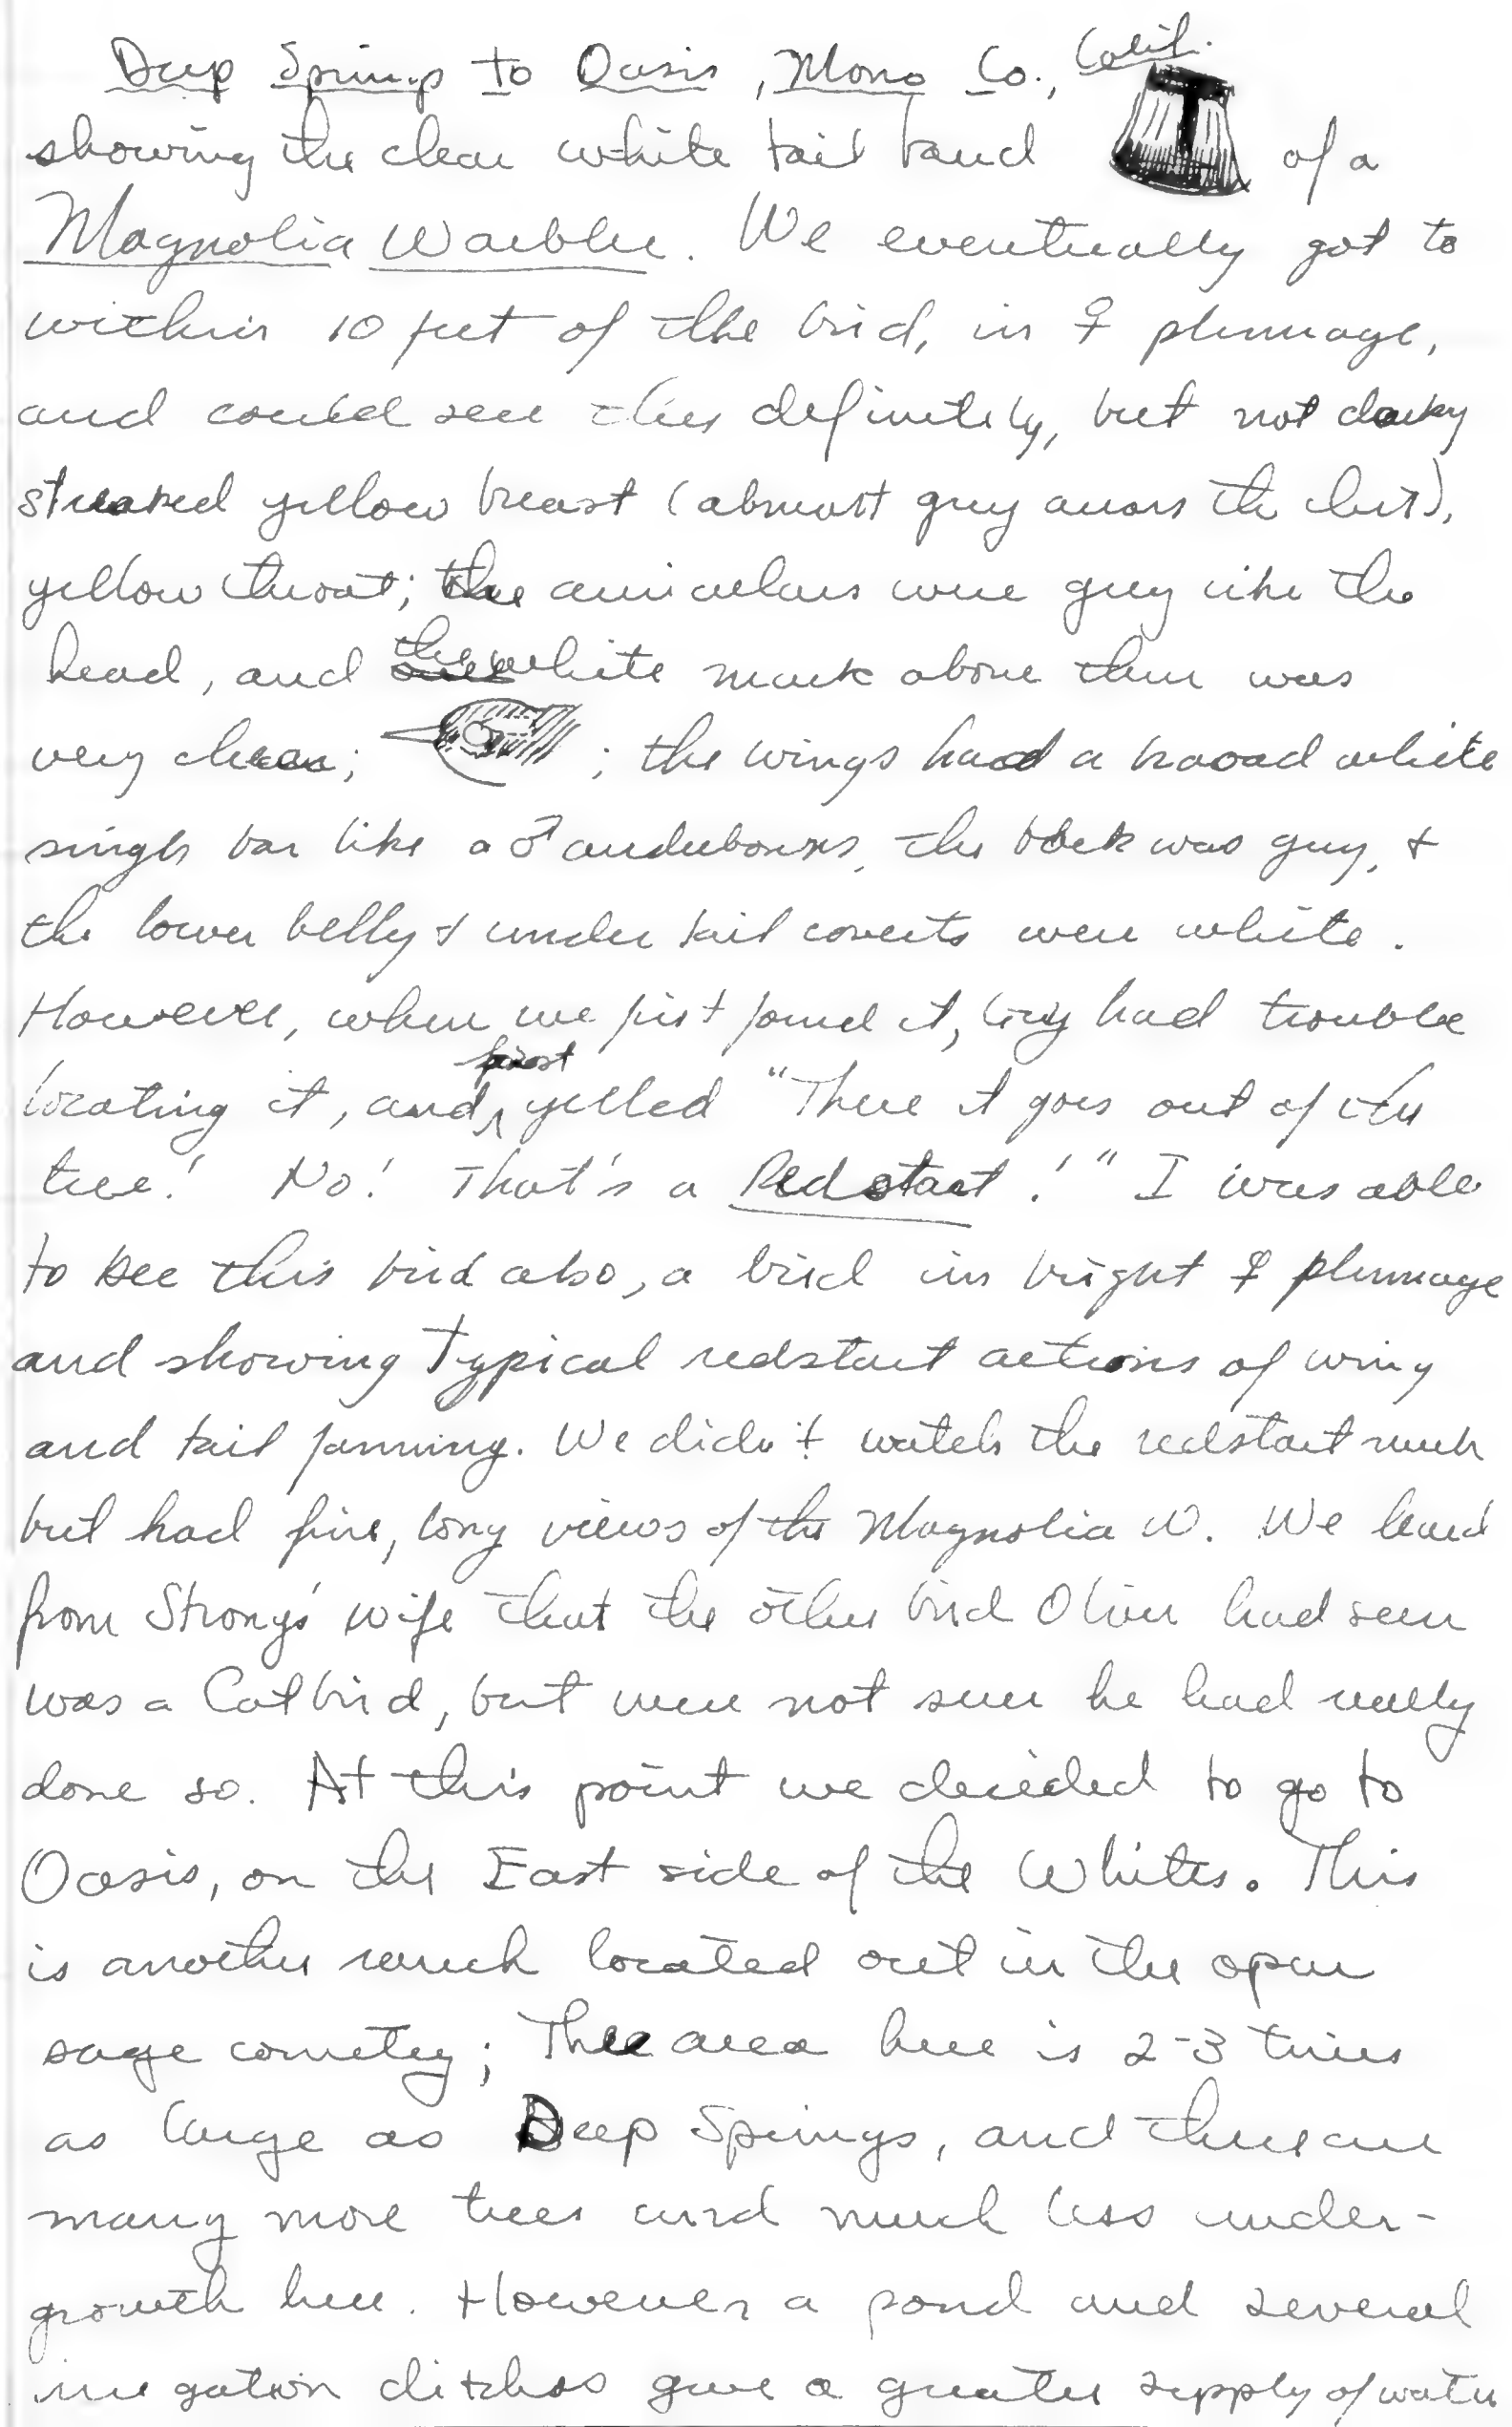 Deep Springs to Oasis, Mono Co., Calif.
showing the clear white tail band of a
Magnolia Warbler. We eventually got to
within 10 feet of the bird, in ♀ plumage,
and could see the definitely, but not darkly
streaked yellow breast (almost grey across the chest),
yellow throat; the auriculars were grey like the
head, and the white mark above them was
very clear; ; the wings had a broad white
single bar like a ♂ audubons, the back was grey, +
the lower belly & under tail coverts were white.
However, when we first found it, Guy had trouble
locating it, and first yelled "There it goes out of the
tree! No! That's a Redstart!" I was able
to see this bird also, a bird in bright ♀ plumage
and showing typical redstart actions of wing
and tail fanning. We didn't watch the redstart much
but had fine, long views of the Magnolia W. We heard
from Strong's wife that the other bird Oliver had seen
was a Catbird, but were not sure he had really
done so. At this point we decided to go to
Oasis, on the East side of the Whites. This
is another ranch located out in the open
sage country; The area here is 2-3 times
as large as Deep Springs, and there are
many more trees and much less under-
growth here. However a pond and several
irrigation ditches give a greater supply of water